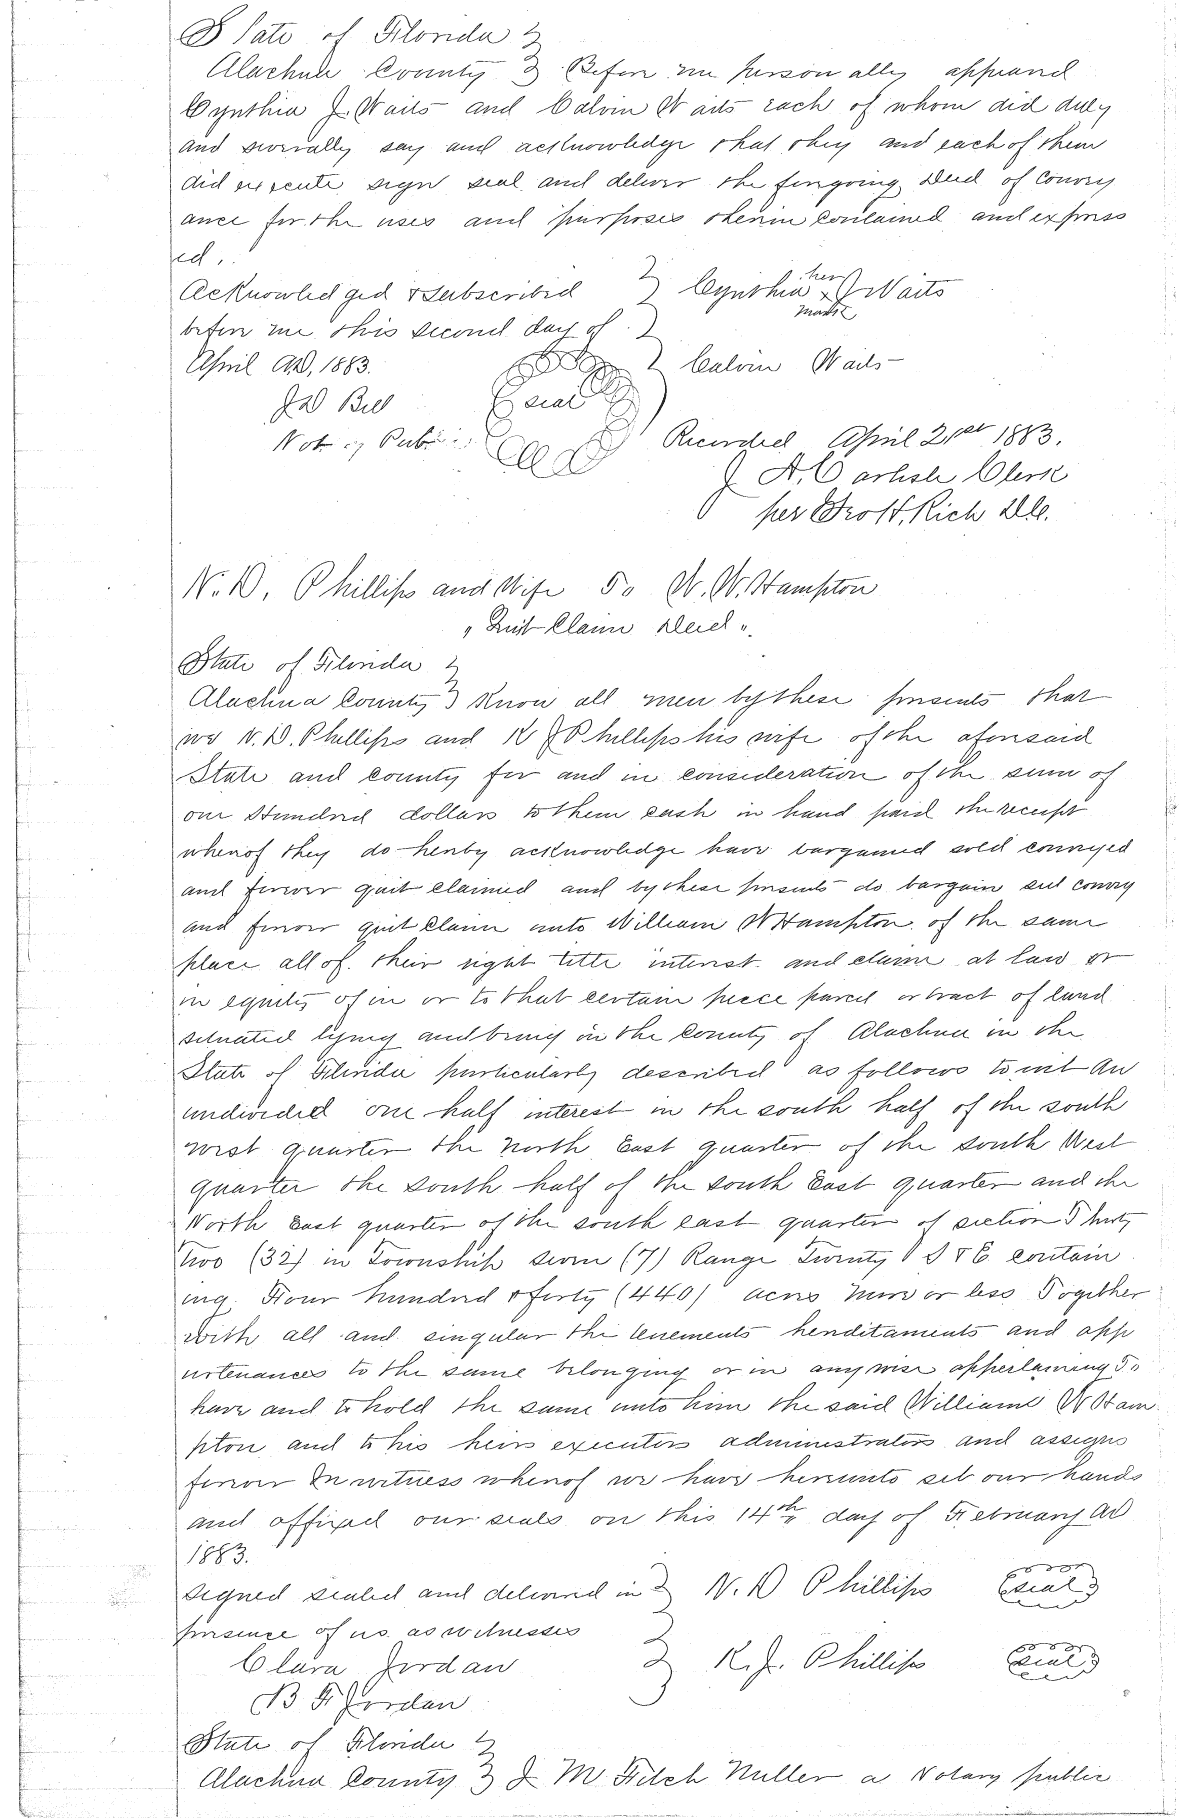 State of Florida
Alachua County Before me personally appeared
Cynthia J. Waits and Calvin Waits each of whom did duly
and severally say and acknowledge that they and each of them
did execute sign seal and deliver the foregoing Deed of Convey
ance for the uses and purposes therein contained and express
ed.
Acknowledged & subscribed Cynthia her x mark J Waits
before me this second day of
April AD, 1883. Calvin Waits
JW Bell seal
Not. Pub. Recorded April 21st 1883.
J. A. Carlisle Clerk
per Rich D.C.
N. D. Phillips and Wife To W. W. Hampton
"Quit Claim Deed".
State of Florida
Alachua County Know all men by these presents that
we N. D. Phillips and K J Phillips his wife of the aforesaid
State and county for and in consideration of the sum of
one Hundred dollars to them cash in hand paid the receipt
whereof they do hereby acknowledge have bargained sold conveyed
and forever quit claimed and by these presents do bargain sell convey
and forever quit claim unto William W Hampton of the same
place all of their right title interest and claim at law or
in equity of in or to that certain piece parcel or tract of land
situated lying and being in the County of Alachua in the
State of Florida particularly described as follows to wit An
undivided one half interest in the south half of the south
west quarter the North East quarter of the south West
quarter the south half of the south East quarter and the
North East quarter of the south east quarter of section Thirty
Two (32) in Township seven (7) Range Twenty S & E contain
ing Four hundred & forty (440) acres more or less Together
with all and singular the tenements hereditaments and app
urtenances to the same belonging or in anywise appertaining To
have and to hold the same unto him the said William W Ham
pton and to his heirs executors administrators and assigns
forever In witness whereof we have hereunto set our hands
and affixed our seals on this 14th day of February AD
1883.
Signed sealed and delivered in N. D Phillips seal
presence of us as witnesses
Clara Jordan K. J. Phillips seal
B F Jordan
State of Florida
Alachua County I M. Fitch Miller a Notary public